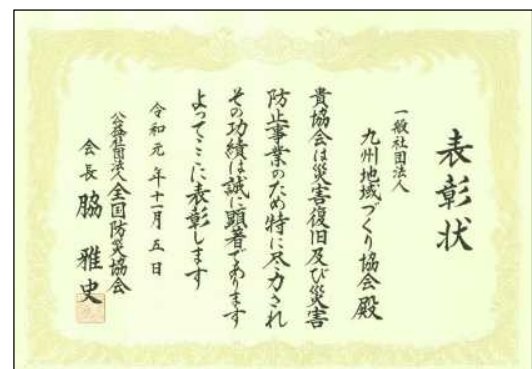 表彰状
一般社団法人
九州地域づくり協会殿
貴協会は災害復旧及び災害
防止事業のため特に尽力され
その功績は誠に顕著であります
よってここに表彰します
令和元年十一月五日
公益社団法人全国防災協会
会長 脇雅史